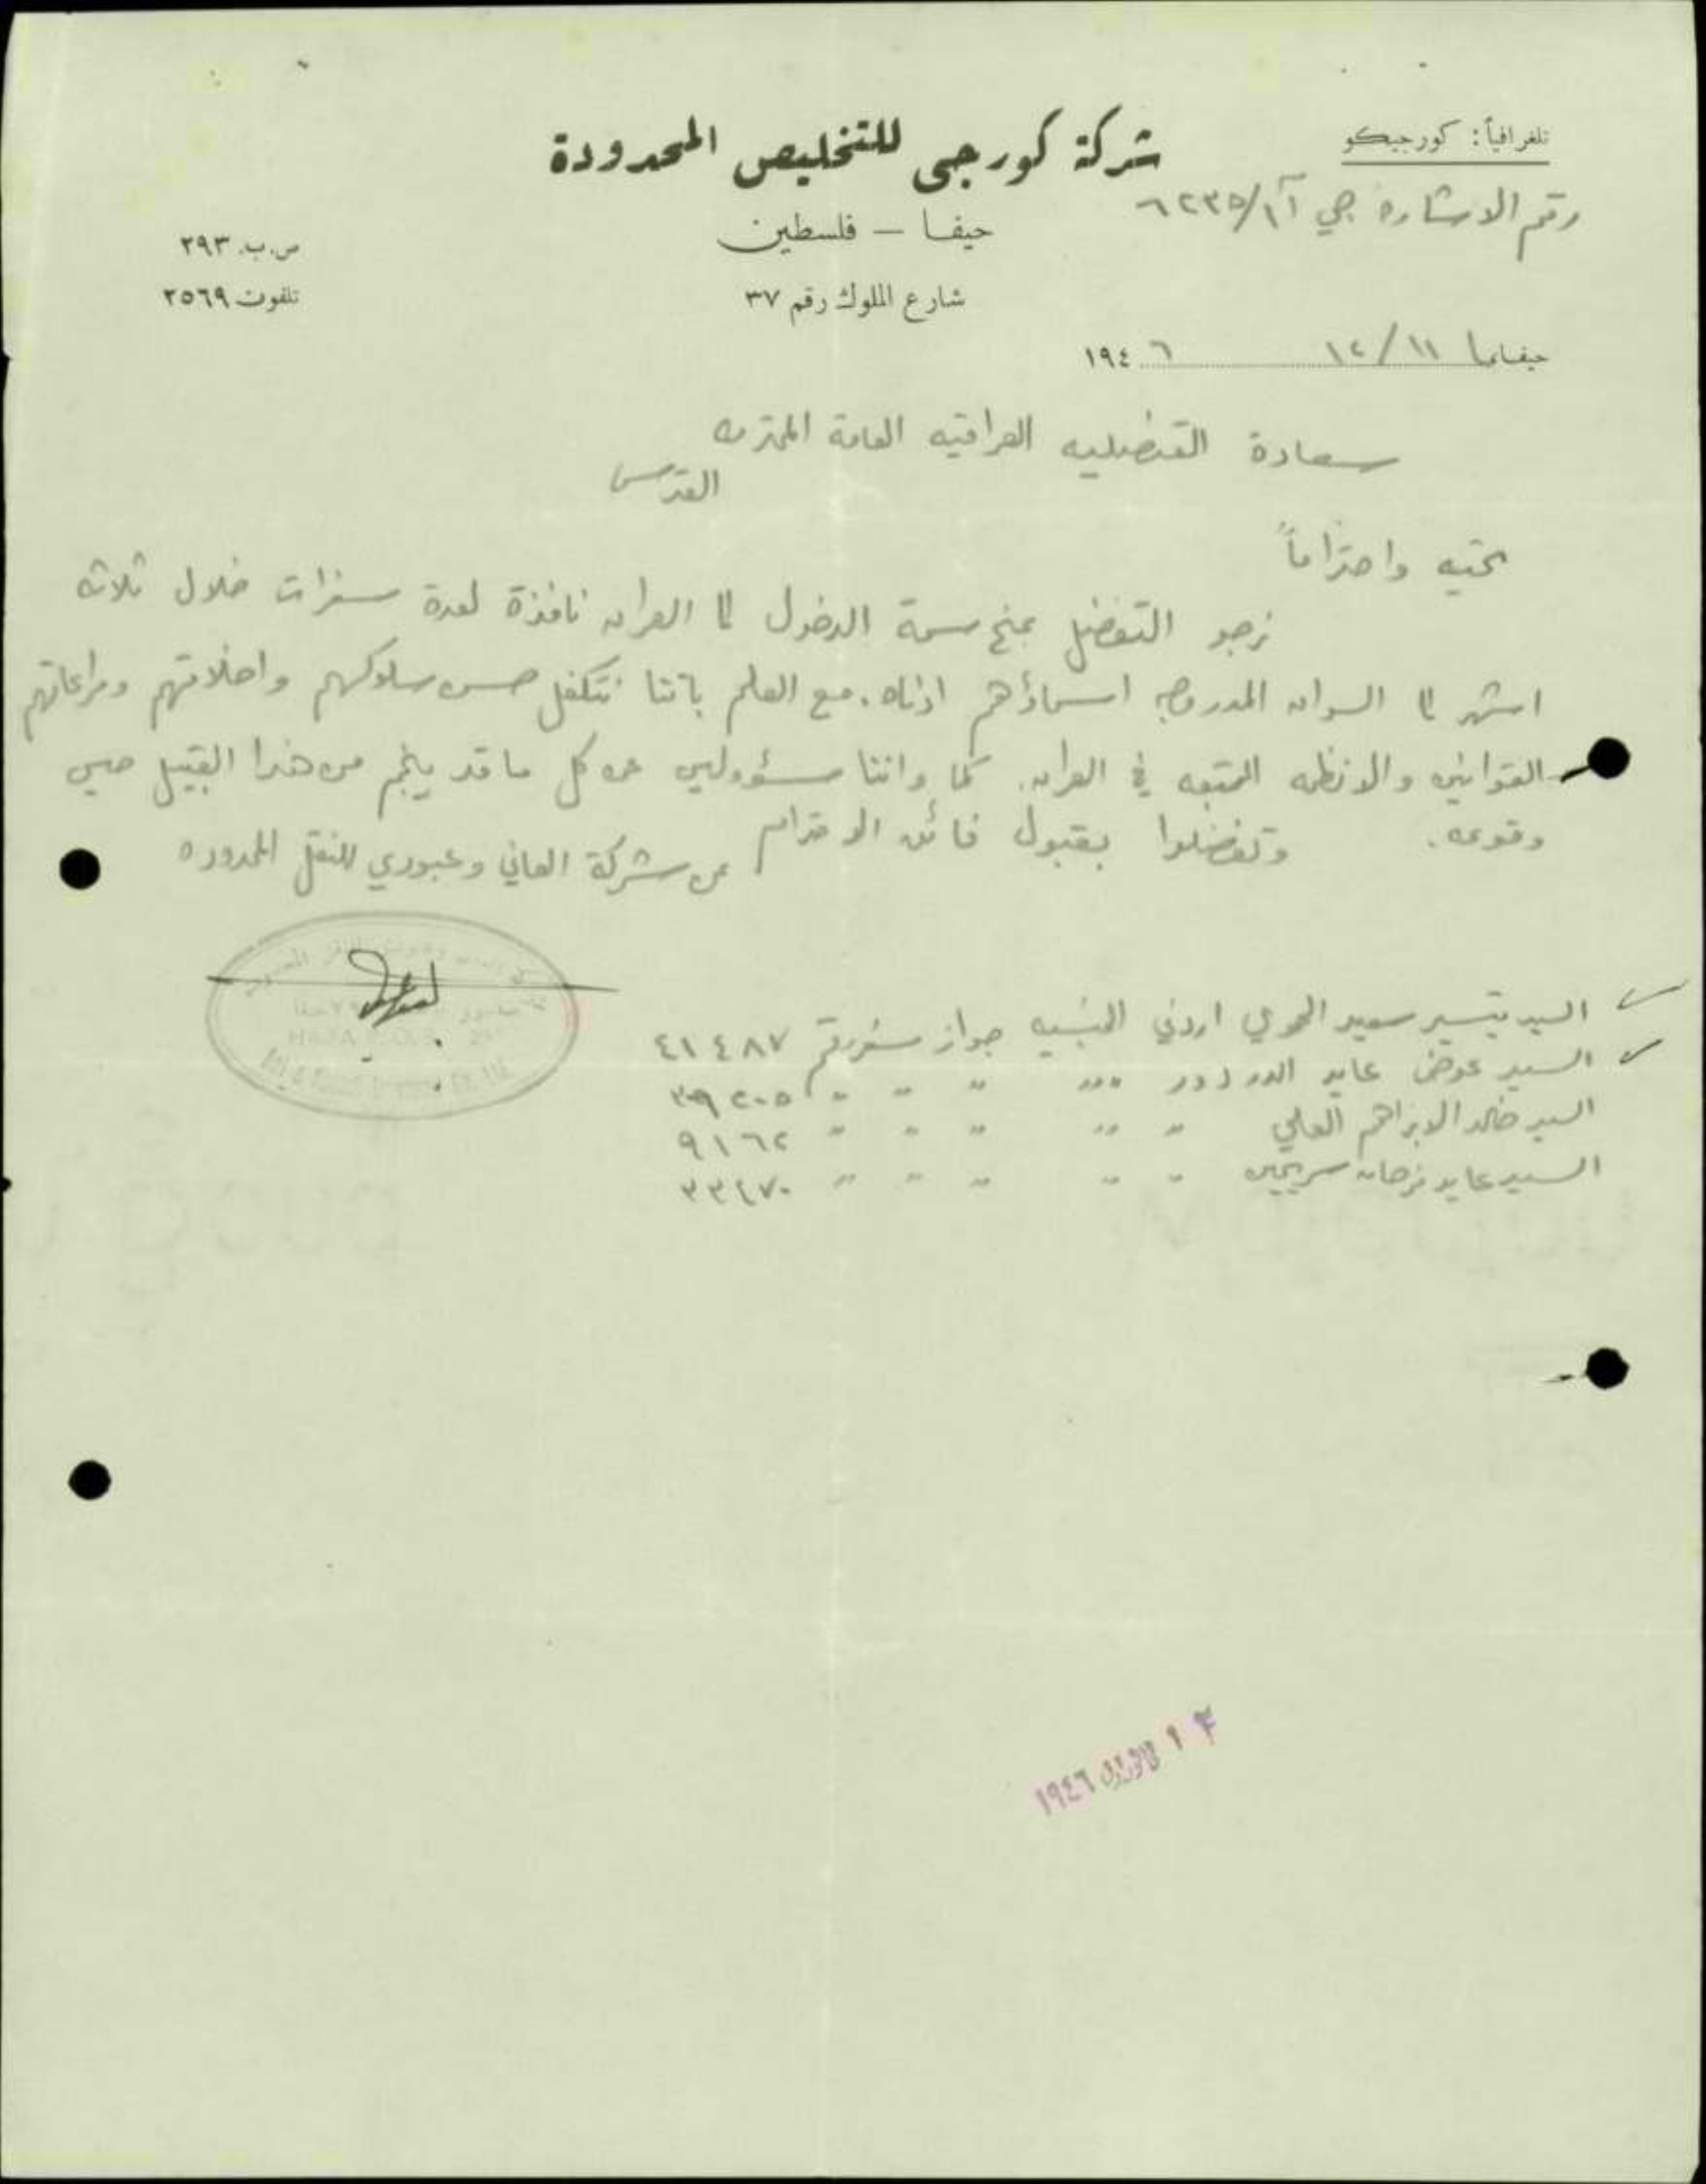 تلغرافياً: كورجيكو
شركة كورجى للتخليص المحدودة
رقم الاشارة جي آ ١/٦٢٣٥
حيفا — فلسطين
ص.ب. ٢٩٣
شارع الملوك رقم ٣٧
تلفون ٢٥٦٩
حيفا ١١/١٢ ١٩٤٦
سعادة القنصليه العراقيه العامة المحترمه
القدس
تحيه واحتراماً
نرجو التفضل بمنح سمة الدخول الى العراق نافذة لعدة سفرات خلال ثلاثه
اشهر الى السواق المدروجه اسماؤهم ادناه. مع العلم باننا نتكفل حسن سلوكهم واخلاقهم ومراعاتهم
القوانين والانظمه المتبعه في العراق. كما واننا مسؤولين عن كل ما قد ينجم من هذا القبيل حين
وقوعه. وتفضلوا بقبول فائق الاحترام
عن شركة العاني وعبوري للنقل المحدوده
السيد تيسير سعيد الحموي اردني الجنسيه جواز سفر رقم ٤١٤٨٧
السيد عوض عايد " " " " " ٣٩٢٠٥
السيد خالد الابراهيم العلي " " " " " ٩١٦٢
السيد عايد فرحان " " " " " ٣٣٤٧٠
HAIFA P.O.B.
١٢ كانون الاول ١٩٤٦